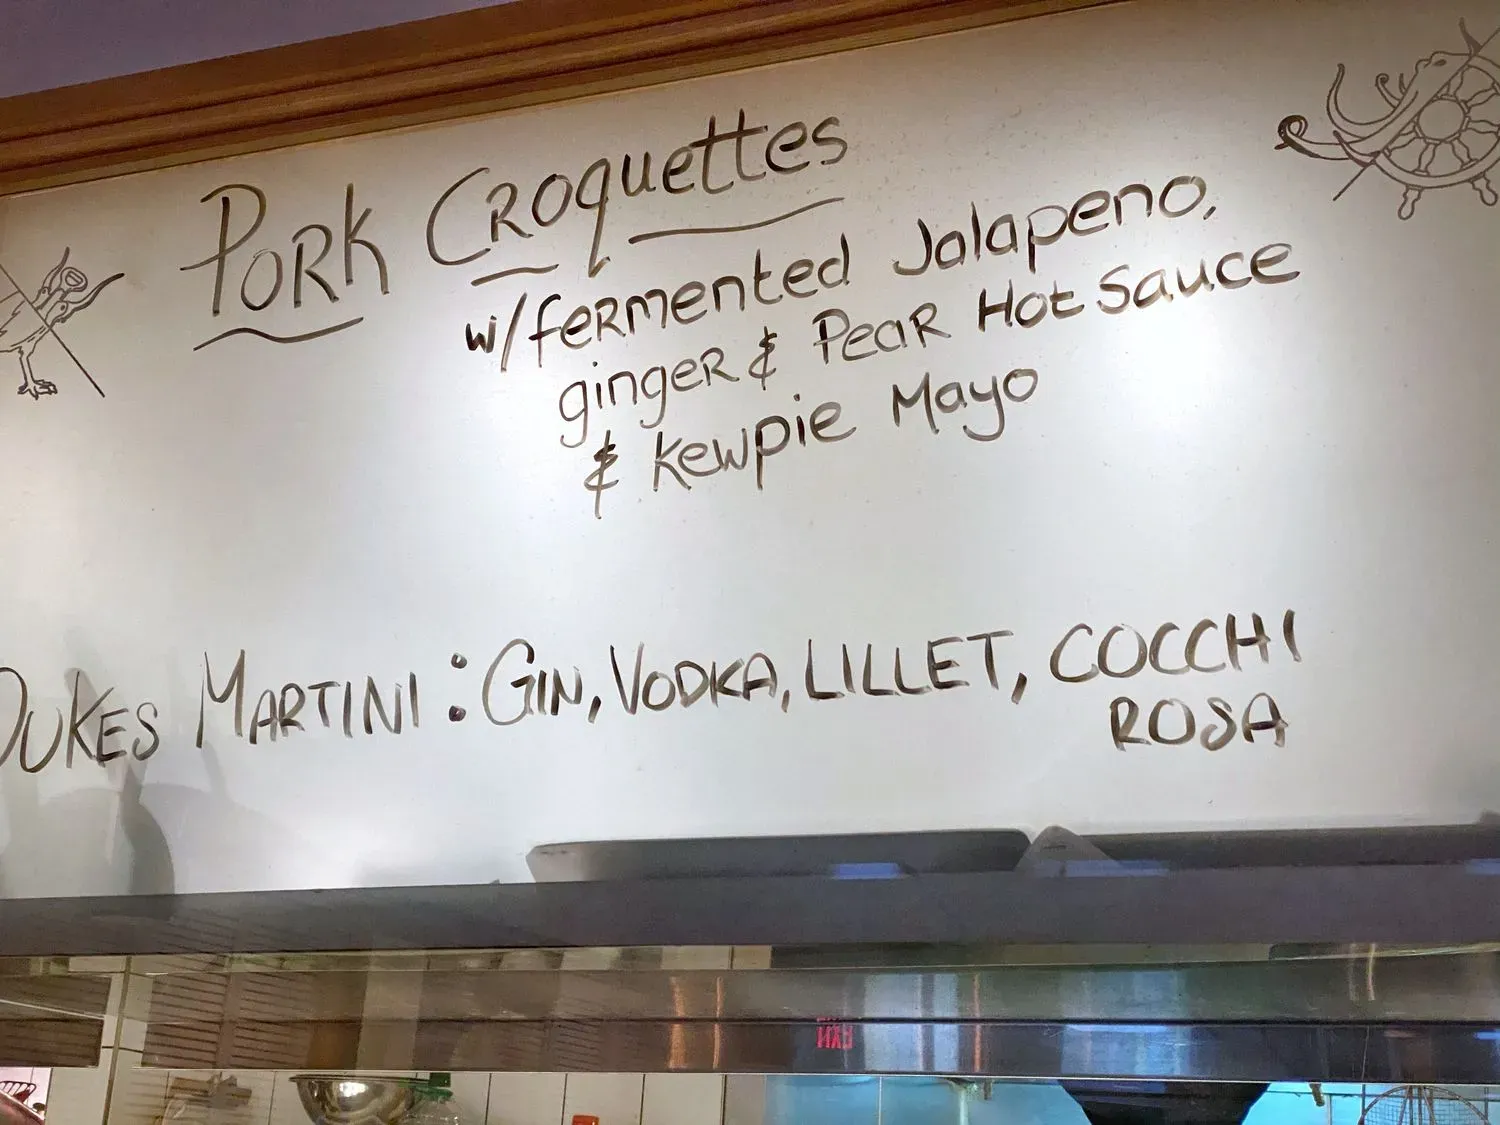 Pork Croquettes
w/fermented Jalapeno,
ginger & Pear Hot Sauce
& Kewpie Mayo
DUKES MARTINI: GIN, VODKA, LILLET, COCCHI
ROSA
EXIT